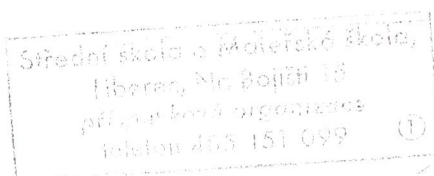 Střední škola a Mateřská škola,
Liberec, Na Bojišti 15
příspěvková organizace
telefon 485 151 099
①